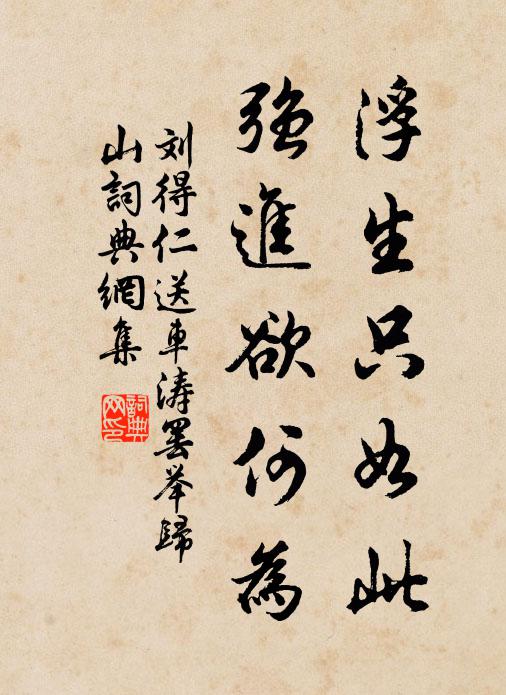 浮生只如此
強進欲何為
刘得仁送車涛罢举歸
山詞典網集
詞典
网印